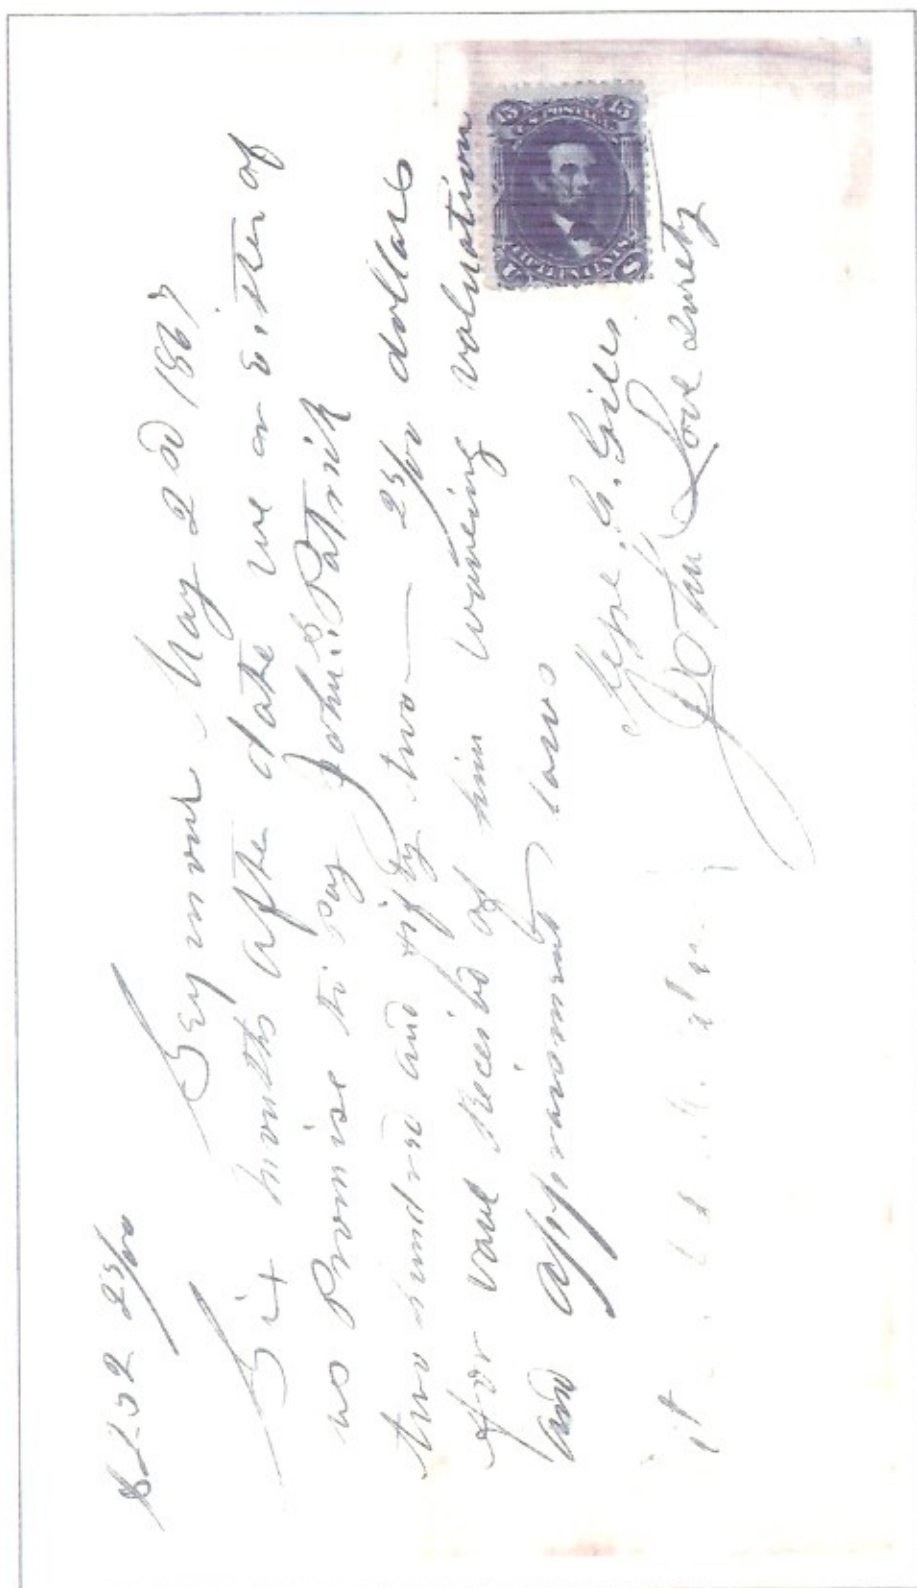 $252 25/100
Seymour May 2nd 1867
Six months after date we or Either of
us Promise to Pay John. S Patrick
two hundred and fifty two — 25/100 dollars
for value Received of him waiving valuation
and appraisment laws
Jesse. G. Giles
John Love Surety
15 15
U.S. POSTAGE
FIFTEEN CENTS
U S